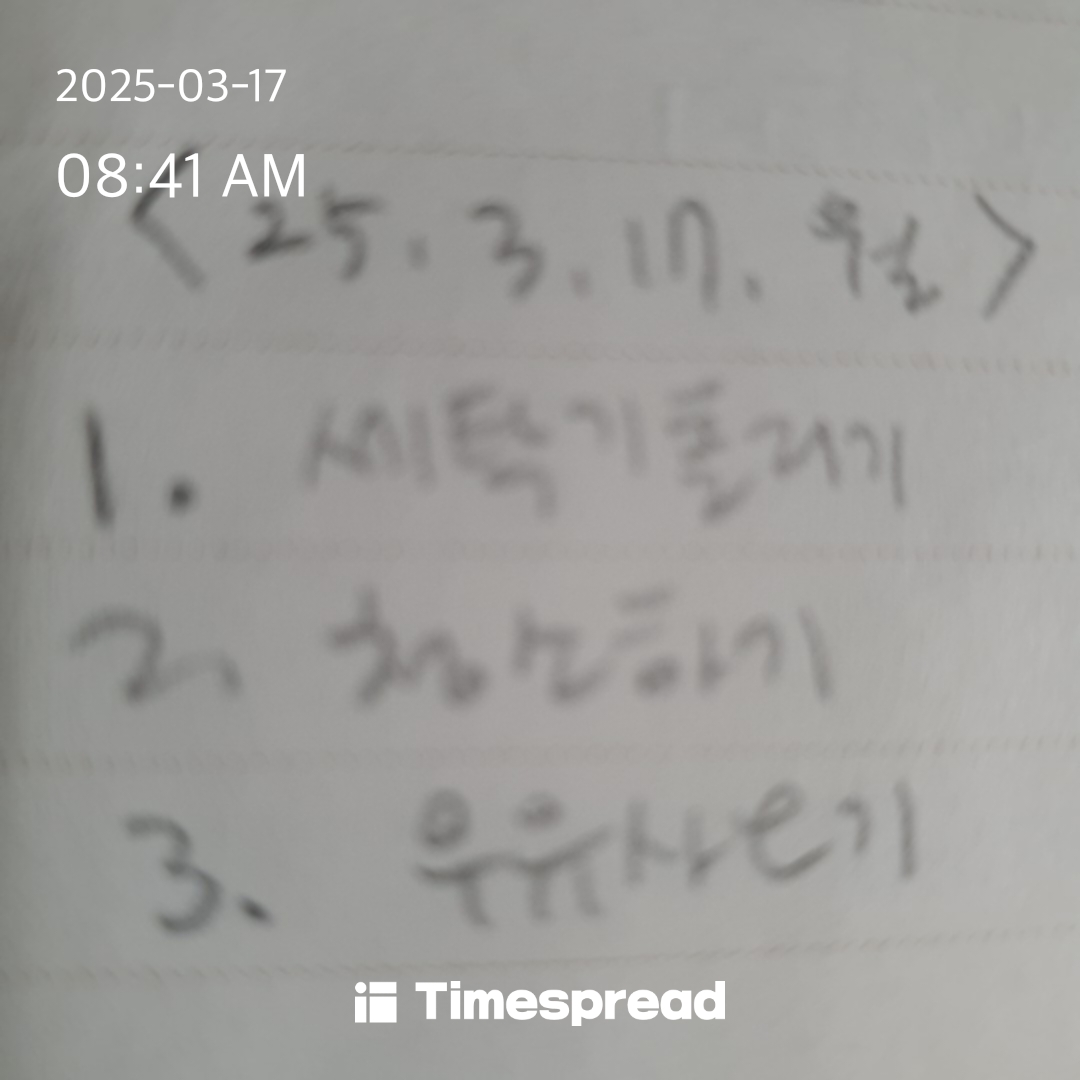 2025-03-17
08:41 AM
< 25. 3. 17. 월 >
1. 세탁기돌리기
2. 청소하기
3. 우유사오기